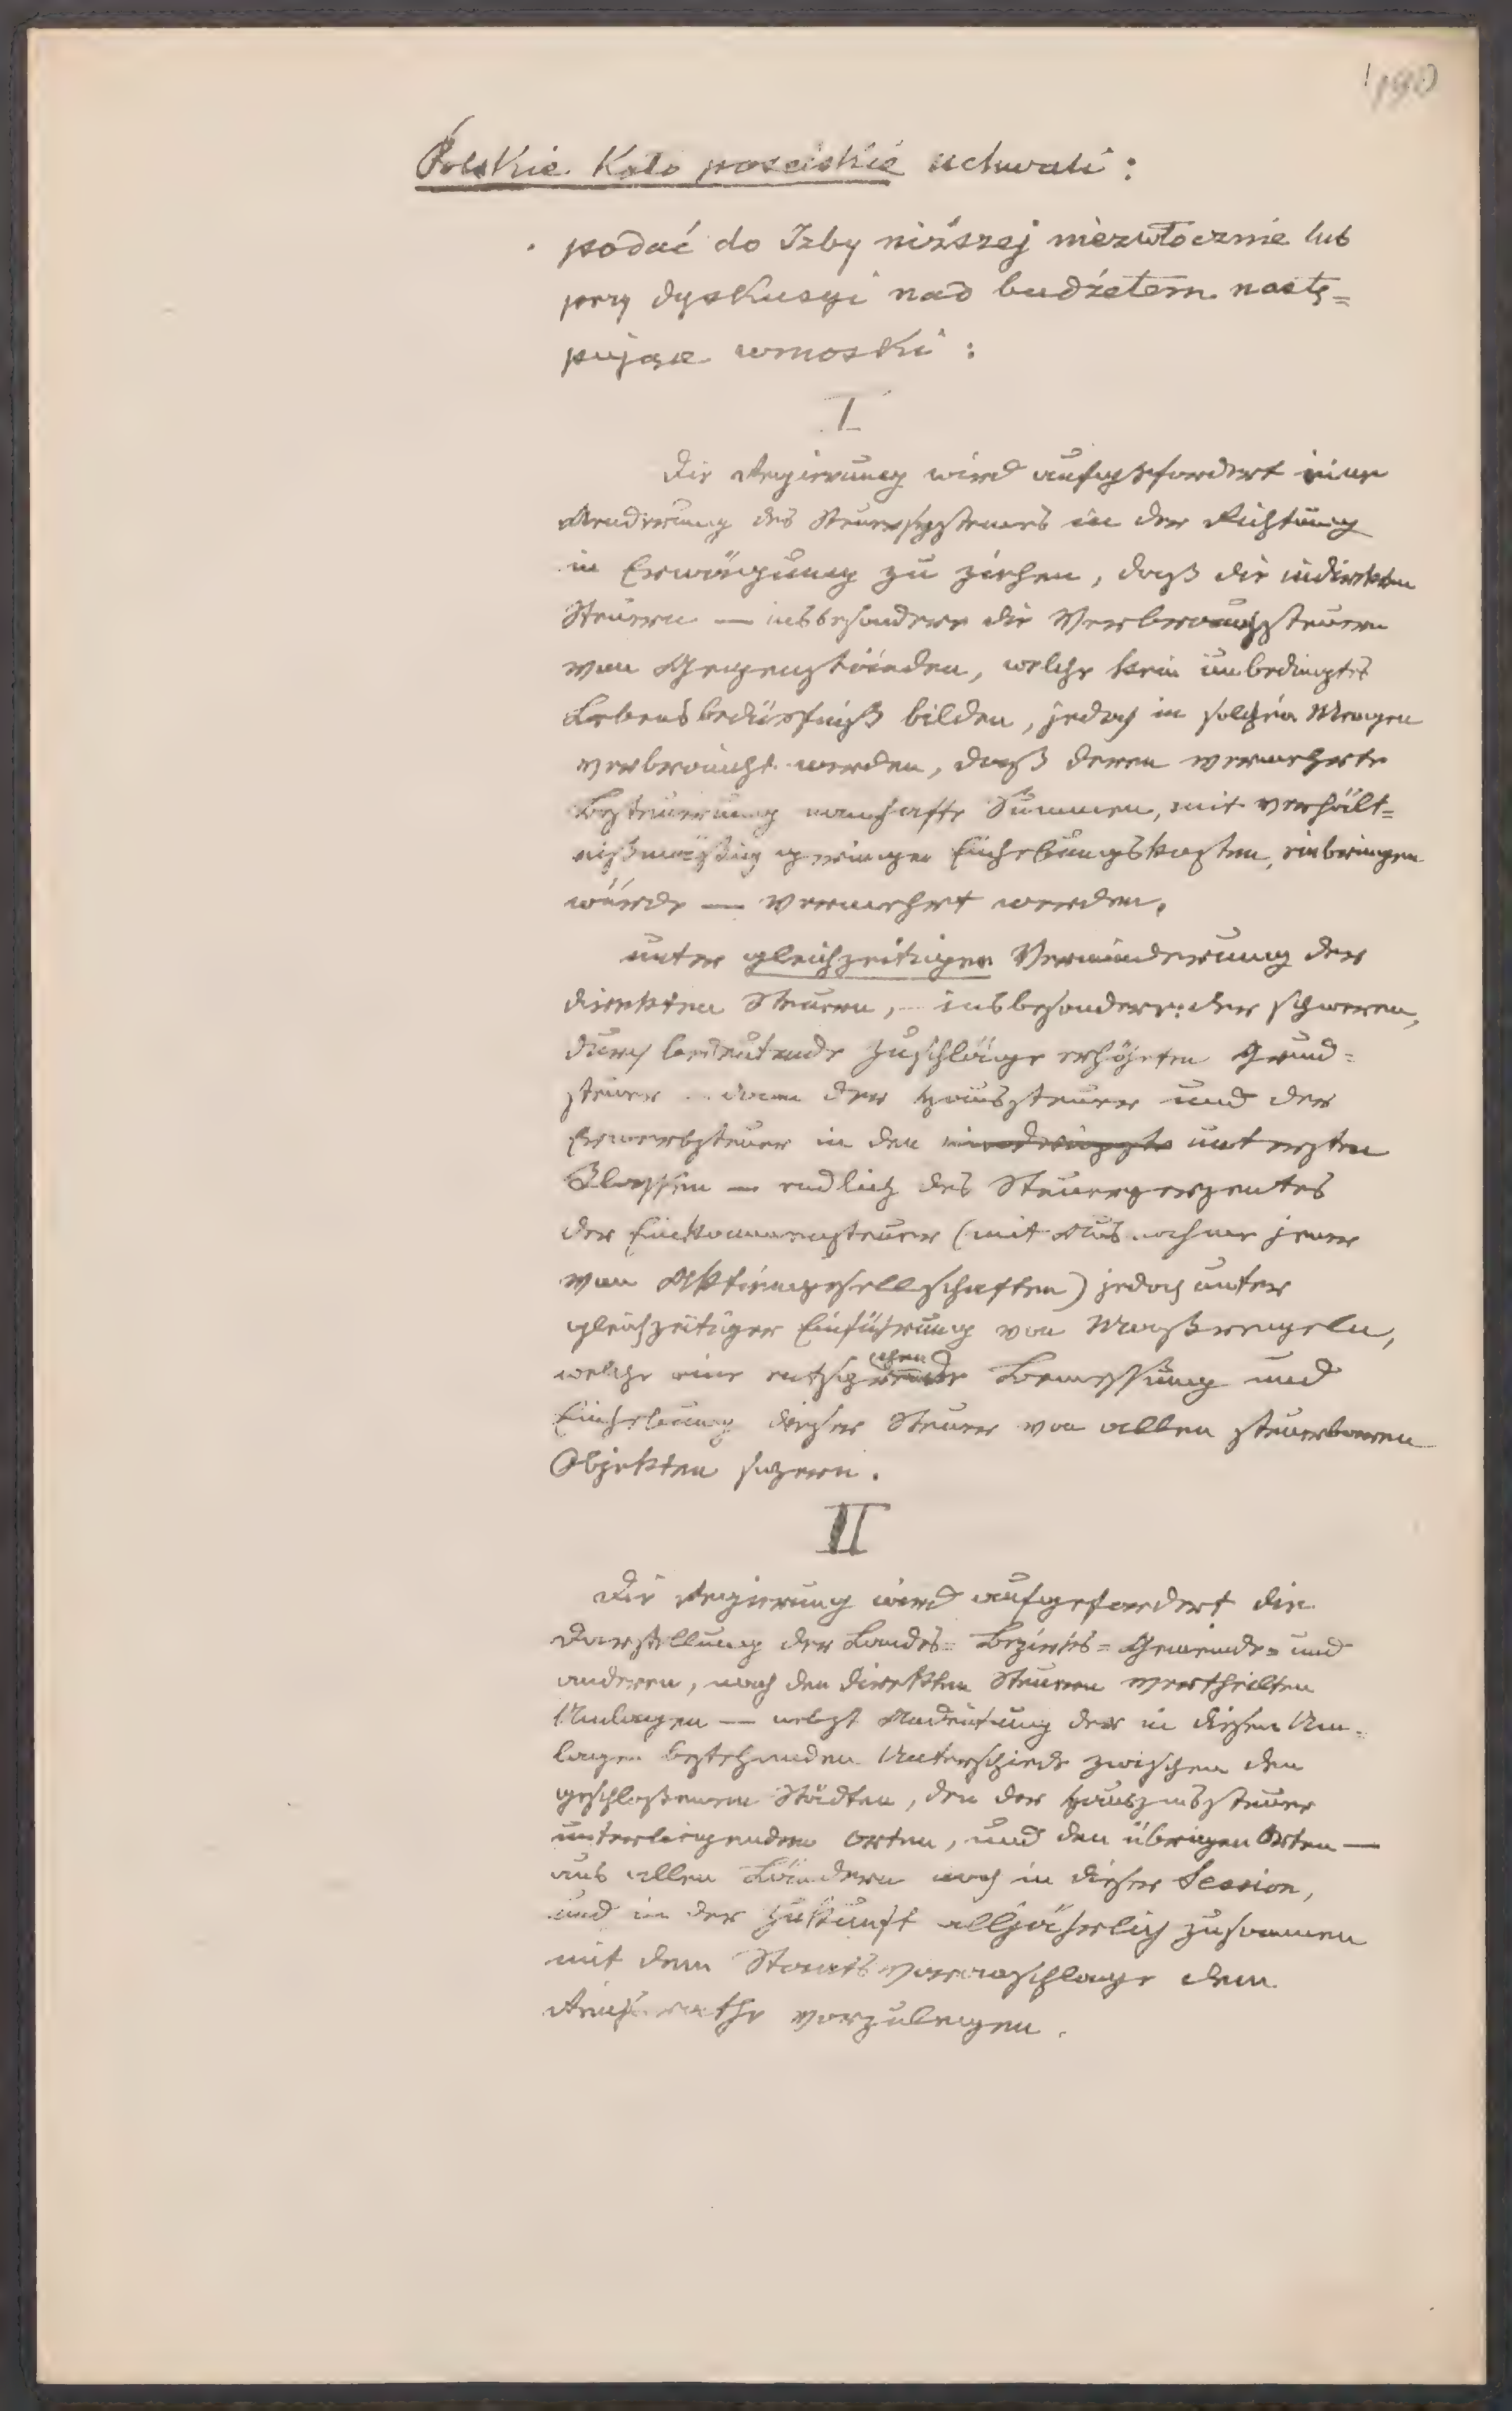 190
Polskie Koło poselskie uchwali:
podać do Izby niższej niezwłocznie lub
przy dyskusyi nad budżetem nastę=
pujące wnioski:
I
Die Regierung wird aufgefordert eine
Aenderung des Steuersystemes in der Richtung
in Erwägung zu ziehen, daß die indirekten
Steuern — insbesondere die Verbrauchssteuern
von Gegenständen, welche kein unbedingtes
Lebensbedürfniß bilden, jedoch in solchen Mengen
verbraucht werden, daß deren vermehrte
Besteuerung namhafte Summen, mit verhält=
nißmäßig geringen Einhebungskosten, einbringen
würde — vermehrt werden,
unter gleichzeitiger Verminderung der
direkten Steuern, insbesondere: der schweren,
durch bedeutende Zuschläge erhöhten Grund=
steuer dann der Haussteuer und der
Erwerbsteuer in den untersten
Klassen — endlich des Steuerperzentes
der Einkommensteuer (mit Ausnahme jener
von Aktiengesellschaften) jedoch unter
gleichzeitiger Einführung von Maaßregeln,
welche eine entsprechende Bemessung und
Einhebung dieser Steuer von allen steuerbaren
Objekten sichern.
II
Die Regierung wird aufgefordert die
Darstellung der Landes= Bezirks= Gemeinde= und
anderen, nach den direkten Steuern vertheilten
Umlagen — nebst Andeutung der in diesen Um=
lagen bestehenden Unterschiede zwischen den
geschlossenen Städten, den der Hauszinssteuer
unterliegenden Orten, und den übrigen Orten —
aus allen Ländern noch in dieser Session,
und in der Zukunft alljährlich zusammen
mit dem Staatsvoranschlage dem
Reichsrathe vorzulegen.